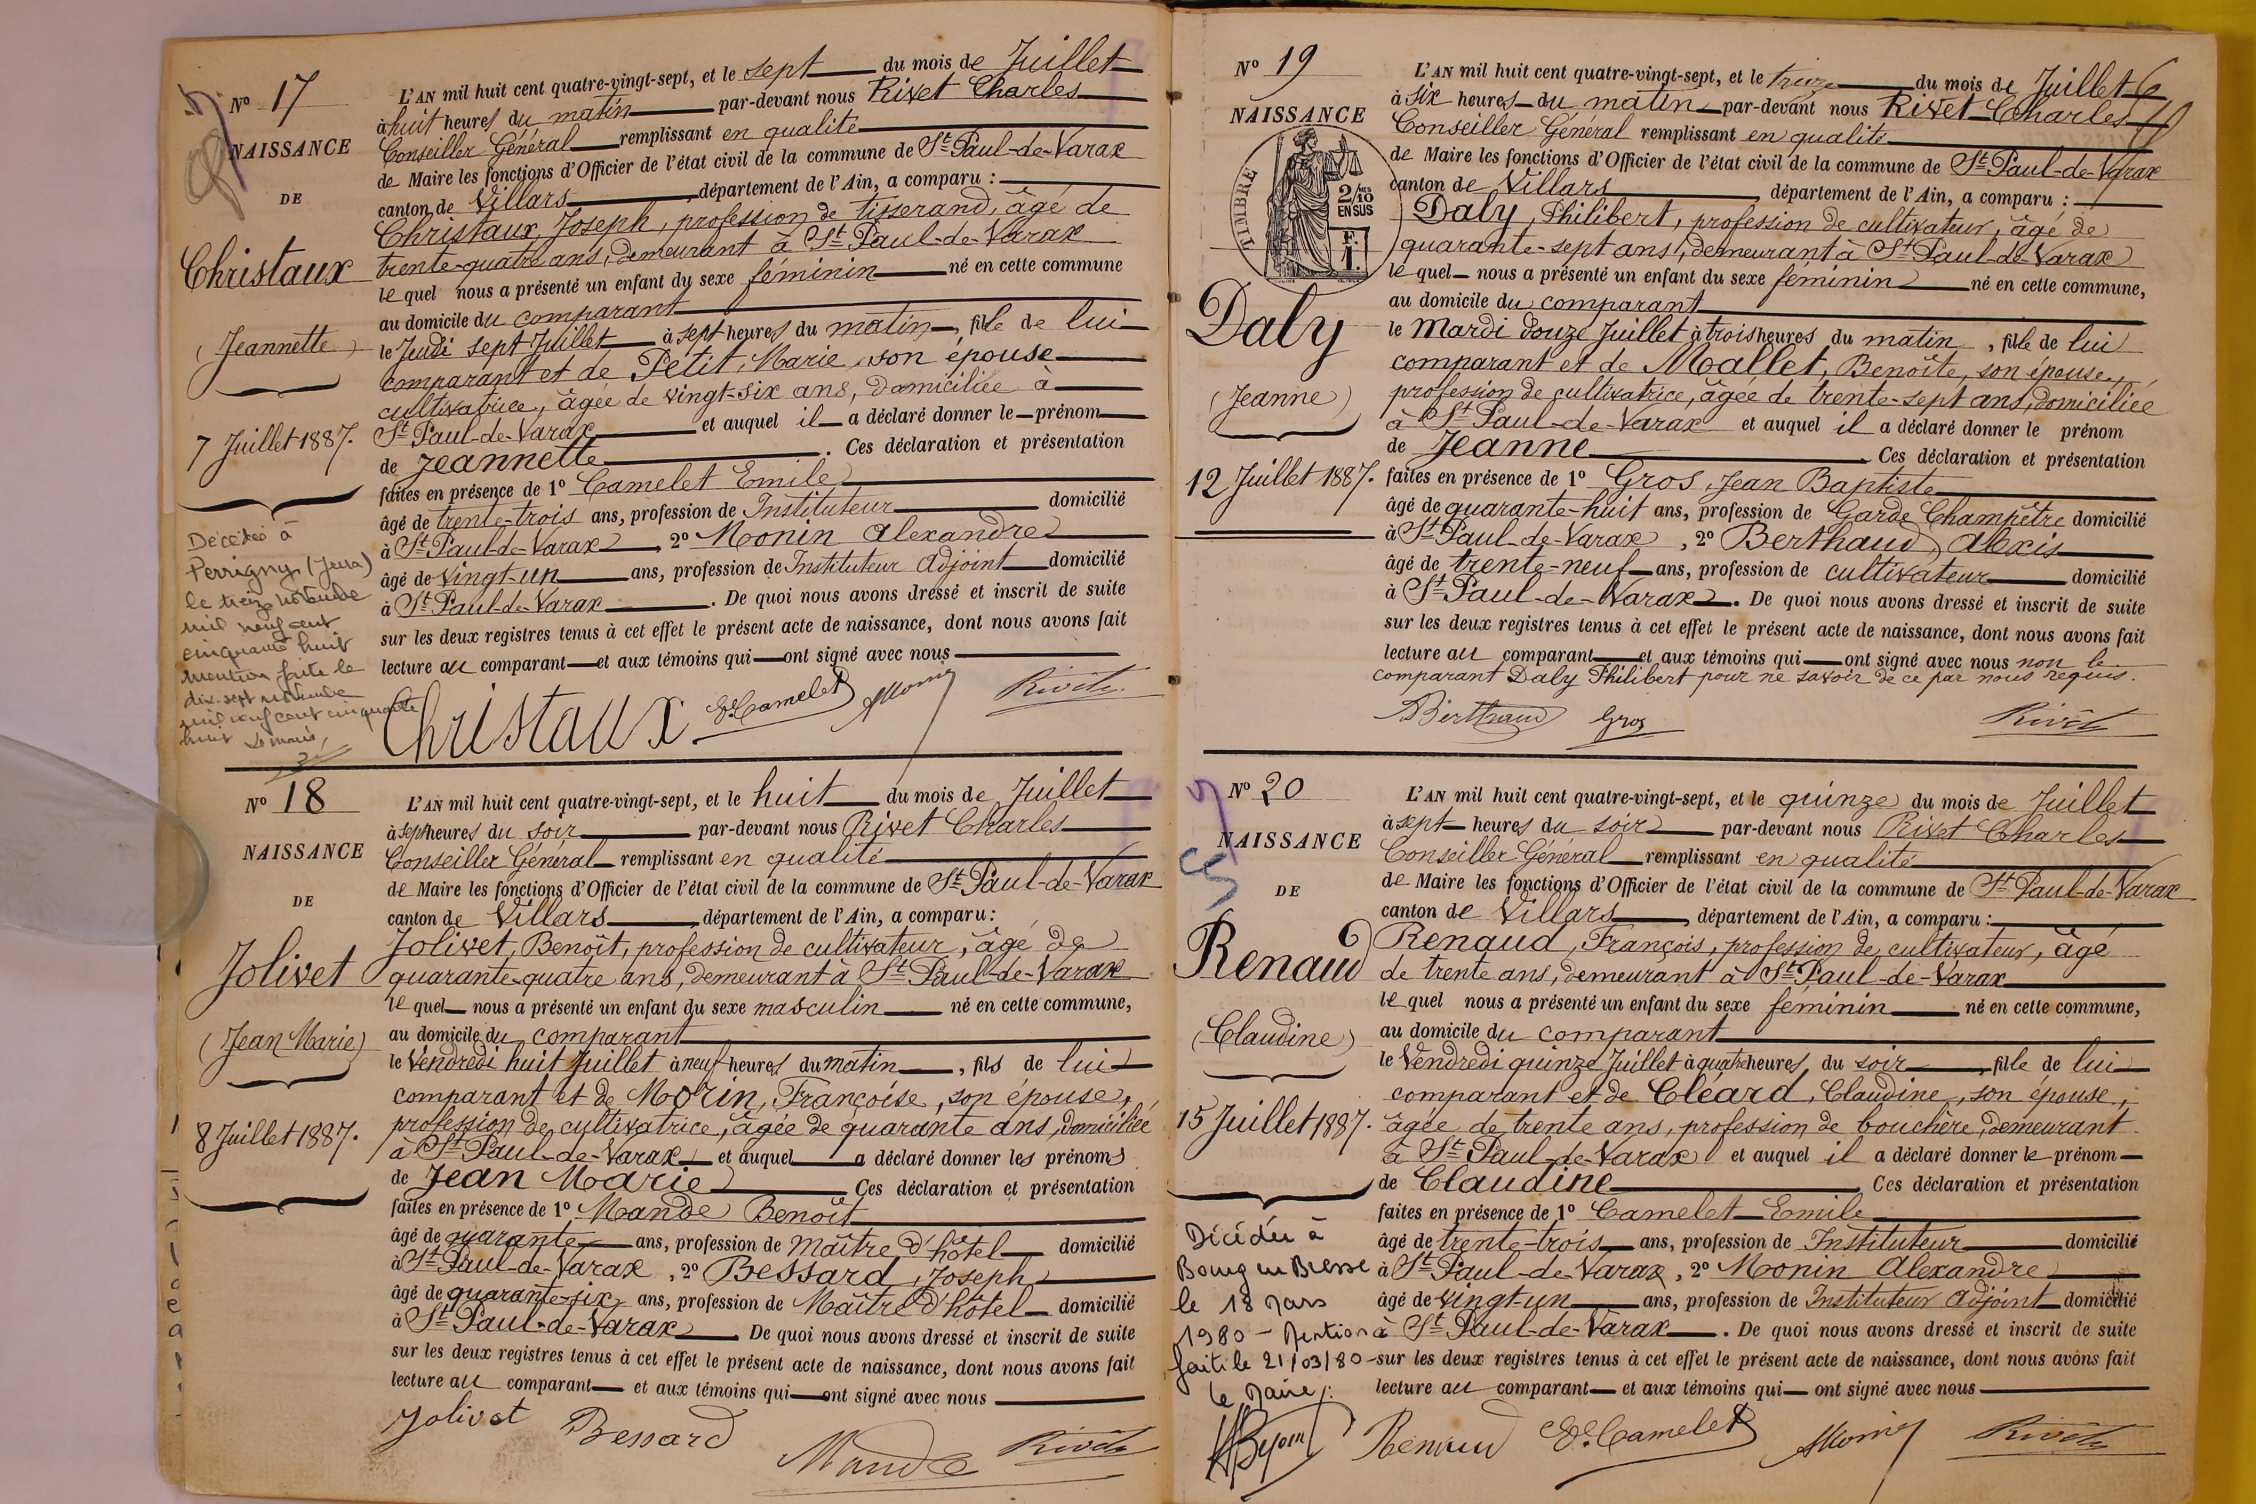 N° 17
NAISSANCE
DE
Christaux
(Jeannette)
7 Juillet 1887.
Décédée à
Perrigny (Jura)
le treize novembre
mil neuf cent
cinquante huit
mention faite le
dix-sept novembre
mil neuf cent cinquante
huit Le maire,
L'AN mil huit cent quatre-vingt-sept, et le sept du mois de Juillet
à huit heures du matin par-devant nous Rivet Charles
Conseiller Général remplissant en qualité
de Maire les fonctions d'Officier de l'état civil de la commune de St Paul-de-Varax
canton de Villars, département de l'Ain, a comparu :
Christaux, Joseph, profession de tisserand, âgé de
trente-quatre ans, demeurant à St Paul-de-Varax
le quel nous a présenté un enfant du sexe féminin né en cette commune
au domicile du comparant
le Jeudi sept Juillet à sept heures du matin, fille de lui
comparant et de Petit, Marie, son épouse
cultivatrice, âgée de vingt-six ans, domiciliée à
St Paul-de-Varax et auquel il a déclaré donner le prénom
de Jeannette. Ces déclaration et présentation
faites en présence de 1° Camelet Emile
âgé de trente-trois ans, profession de Instituteur domicilié
à St Paul-de-Varax, 2° Monin Alexandre
âgé de vingt-un ans, profession de Instituteur Adjoint domicilié
à St Paul-de-Varax. De quoi nous avons dressé et inscrit de suite
sur les deux registres tenus à cet effet le présent acte de naissance, dont nous avons fait
lecture au comparant et aux témoins qui ont signé avec nous
Christaux E. Camelet Monin Rivet
N° 18
NAISSANCE
DE
Jolivet
(Jean Marie)
8 Juillet 1887.
L'AN mil huit cent quatre-vingt-sept, et le huit du mois de Juillet
à sept heures du soir par-devant nous Rivet Charles
Conseiller Général remplissant en qualité
de Maire les fonctions d'Officier de l'état civil de la commune de St Paul-de-Varax
canton de Villars, département de l'Ain, a comparu :
Jolivet, Benoît, profession de cultivateur, âgé de
quarante-quatre ans, demeurant à St Paul-de-Varax
le quel nous a présenté un enfant du sexe masculin né en cette commune,
au domicile du comparant
le Vendredi huit Juillet à neuf heures du matin, fils de lui
comparant et de Morin, Françoise, son épouse,
profession de cultivatrice, âgée de quarante ans, domiciliée
à St Paul-de-Varax et auquel a déclaré donner les prénoms
de Jean Marie Ces déclaration et présentation
faites en présence de 1° Mande Benoît
âgé de quarante ans, profession de Maître d'hôtel domicilié
à St Paul-de-Varax, 2° Bessard, Joseph
âgé de quarante-six ans, profession de Maître d'hôtel domicilié
à St Paul-de-Varax. De quoi nous avons dressé et inscrit de suite
sur les deux registres tenus à cet effet le présent acte de naissance, dont nous avons fait
lecture au comparant et aux témoins qui ont signé avec nous
Jolivet Bessard Mande Rivet
N° 19
NAISSANCE
TIMBRE
2/10 ES
EN SUS
F.
1.
Daly
(Jeanne)
12 Juillet 1887.
L'AN mil huit cent quatre-vingt-sept, et le treize du mois de Juillet
à six heures du matin par-devant nous Rivet Charles
Conseiller Général remplissant en qualité
de Maire les fonctions d'Officier de l'état civil de la commune de St Paul-de-Varax
canton de Villars département de l'Ain, a comparu :
Daly, Philibert, profession de cultivateur, âgé de
quarante-sept ans, demeurant à St Paul-de-Varax
le quel nous a présenté un enfant du sexe féminin né en cette commune,
au domicile du comparant
le Mardi douze Juillet à trois heures du matin, fille de lui
comparant et de Mallet, Benoîte, son épouse,
profession de cultivatrice, âgée de trente-sept ans, domiciliée
à St Paul-de-Varax et auquel il a déclaré donner le prénom
de Jeanne Ces déclaration et présentation
faites en présence de 1° Gros, Jean Baptiste
âgé de quarante-huit ans, profession de Garde Champêtre domicilié
à St Paul-de-Varax, 2° Berthaud, Alexis
âgé de trente-neuf ans, profession de cultivateur domicilié
à St Paul-de-Varax. De quoi nous avons dressé et inscrit de suite
sur les deux registres tenus à cet effet le présent acte de naissance, dont nous avons fait
lecture au comparant et aux témoins qui ont signé avec nous non le
comparant Daly Philibert pour ne savoir de ce par nous requis.
Berthaud Gros Rivet
N° 20
NAISSANCE
DE
Renaud
(Claudine)
15 Juillet 1887.
Décédée à
Bourg en Bresse
le 18 Mars
1980 - Mention
faite le 21/03/80 -
Le Maire,
L'AN mil huit cent quatre-vingt-sept, et le quinze du mois de Juillet
à sept heures du soir par-devant nous Rivet Charles
Conseiller Général remplissant en qualité
de Maire les fonctions d'Officier de l'état civil de la commune de St Paul-de-Varax
canton de Villars, département de l'Ain, a comparu :
Renaud, François, profession de cultivateur, âgé
de trente ans, demeurant à St Paul-de-Varax
le quel nous a présenté un enfant du sexe féminin né en cette commune,
au domicile du comparant
le Vendredi quinze Juillet à quatre heures du soir, fille de lui
comparant et de Cléard, Claudine, son épouse,
âgée de trente ans, profession de bouchère, demeurant
à St Paul-de-Varax et auquel il a déclaré donner le prénom
de Claudine Ces déclaration et présentation
faites en présence de 1° Camelet Emile
âgé de trente-trois ans, profession de Instituteur domicilié
à St Paul-de-Varax, 2° Monin Alexandre
âgé de vingt-un ans, profession de Instituteur Adjoint domicilié
à St Paul-de-Varax. De quoi nous avons dressé et inscrit de suite
sur les deux registres tenus à cet effet le présent acte de naissance, dont nous avons fait
lecture au comparant et aux témoins qui ont signé avec nous
Renaud E. Camelet Monin Rivet